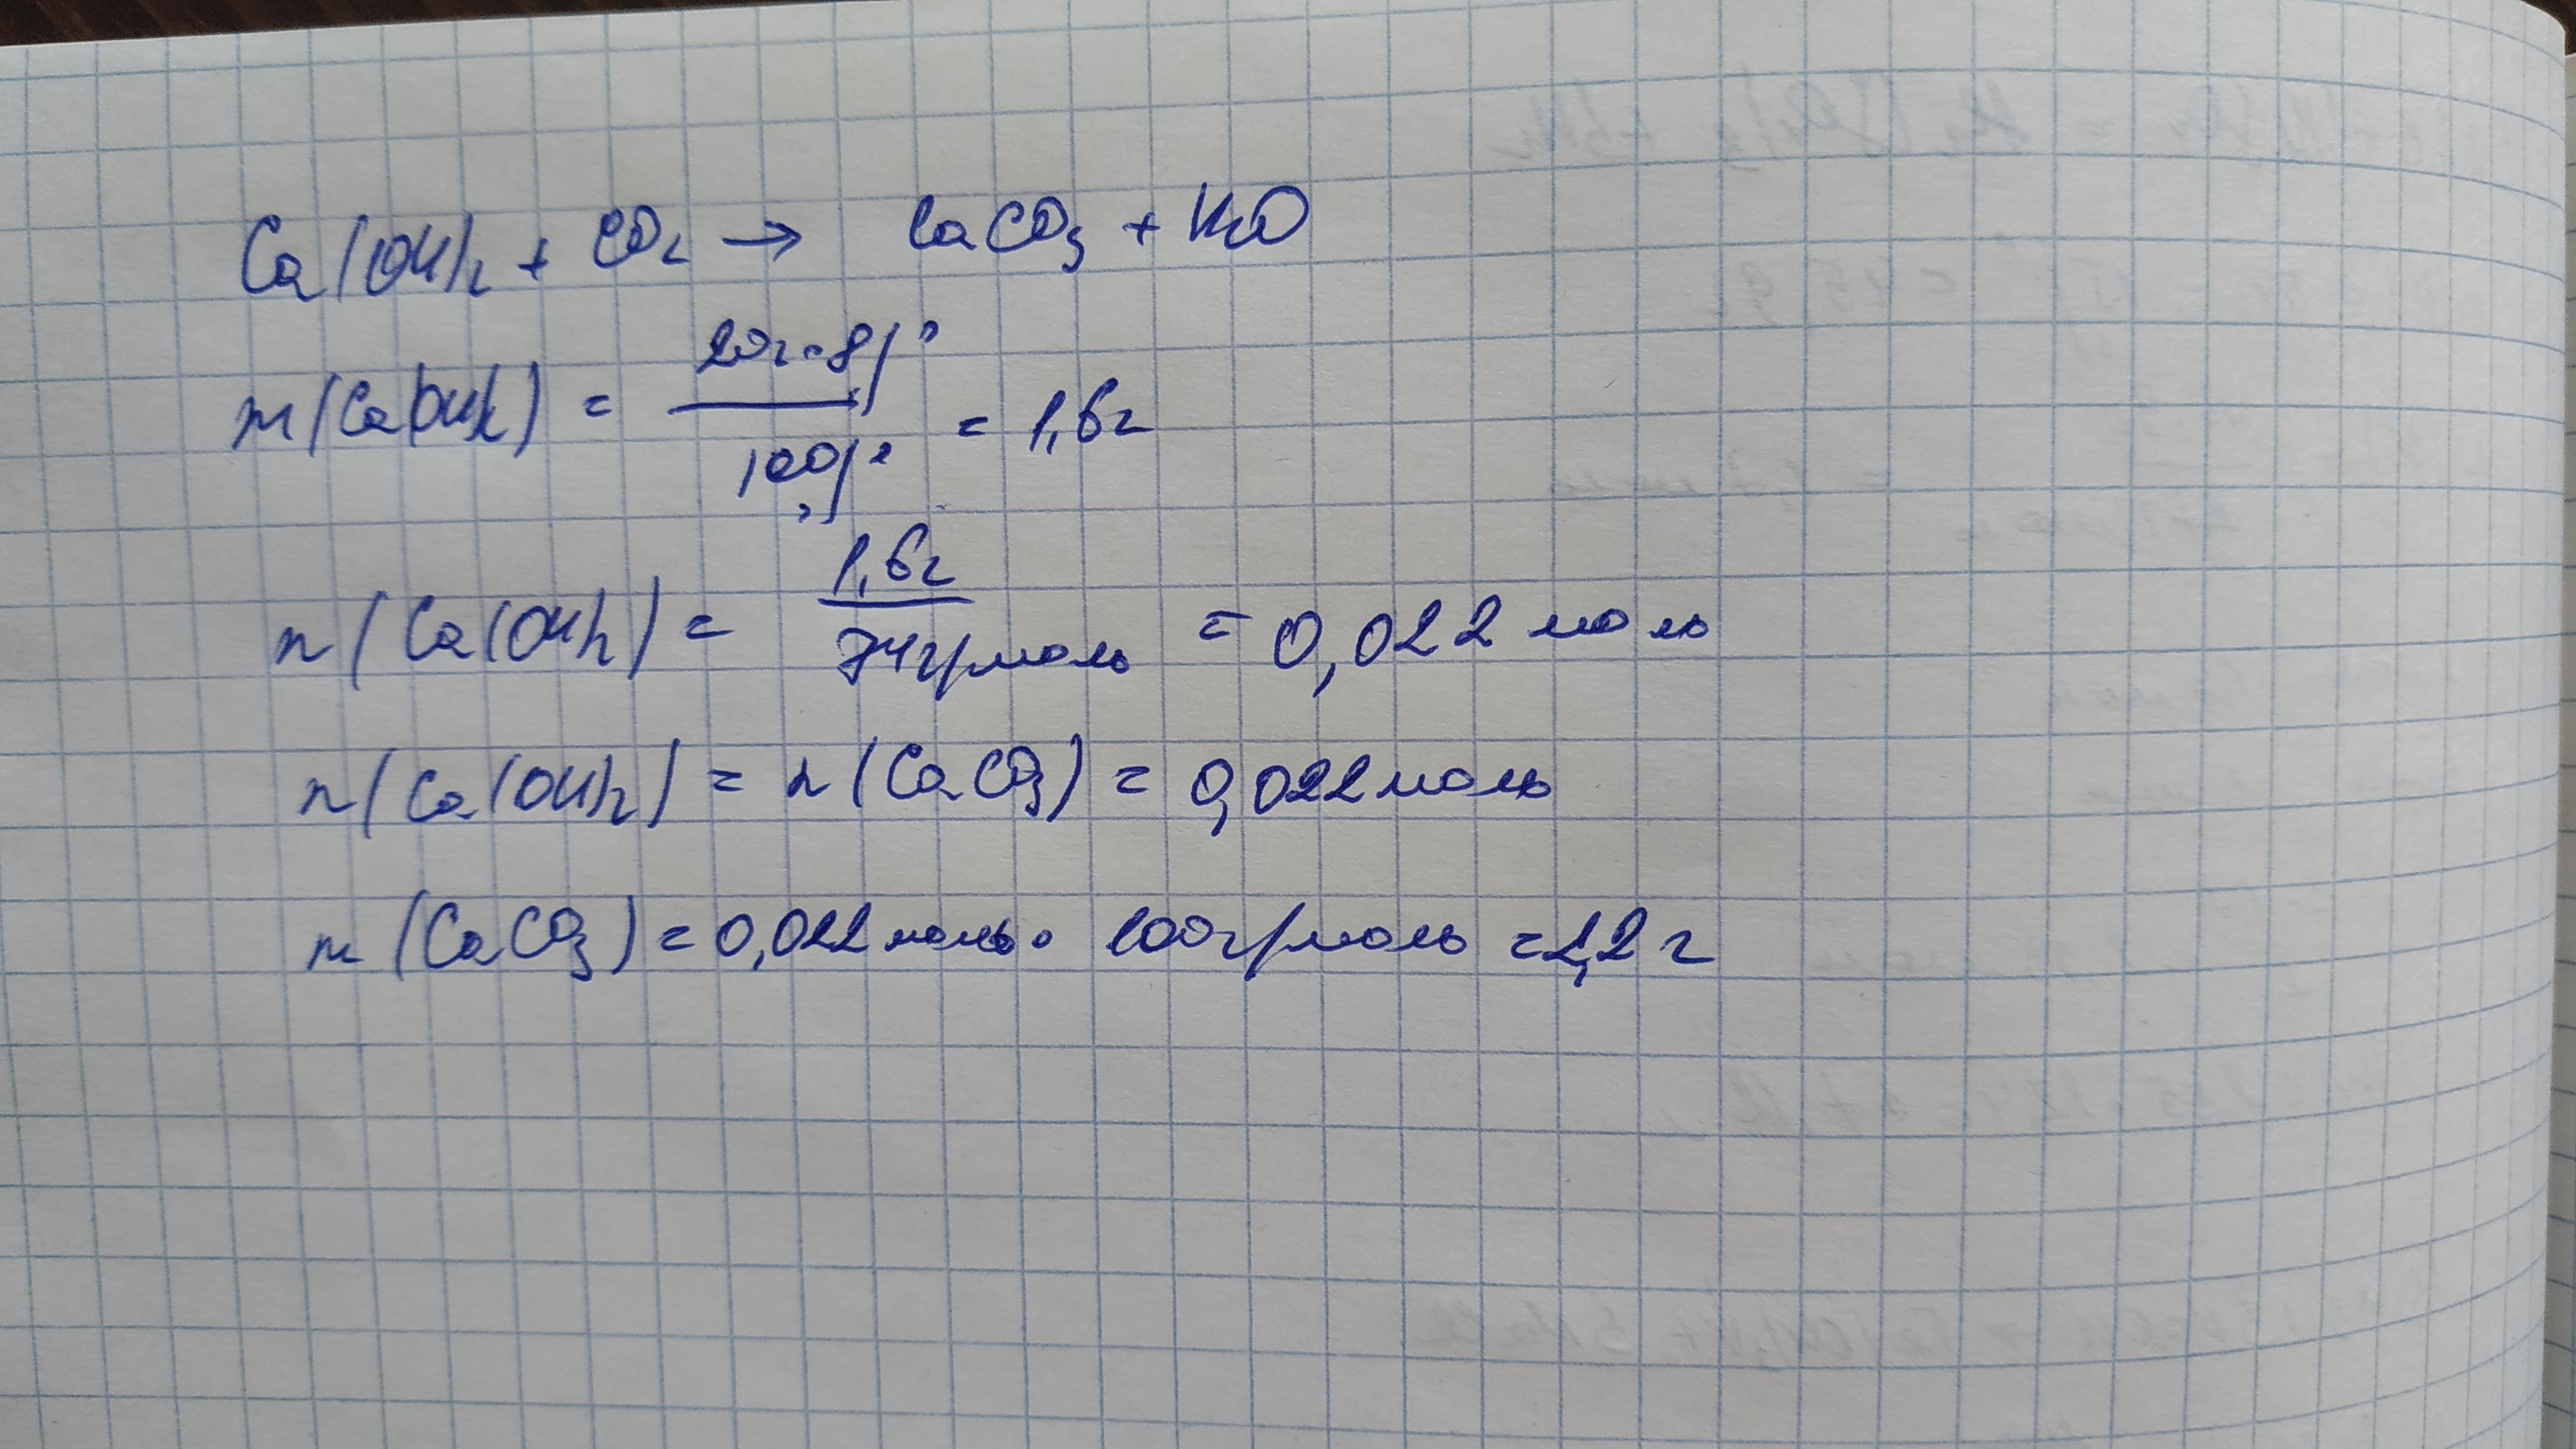 Ca(OH)₂ + CO₂ → CaCO₃ + H₂O
m(Ca(OH)₂) = 20г · 8% / 100% = 1,6г
n(Ca(OH)₂) = 1,6г / 74г/моль = 0,022 моль
n(Ca(OH)₂) = n(CaCO₃) = 0,022 моль
m(CaCO₃) = 0,022 моль · 100г/моль = 2,2 г